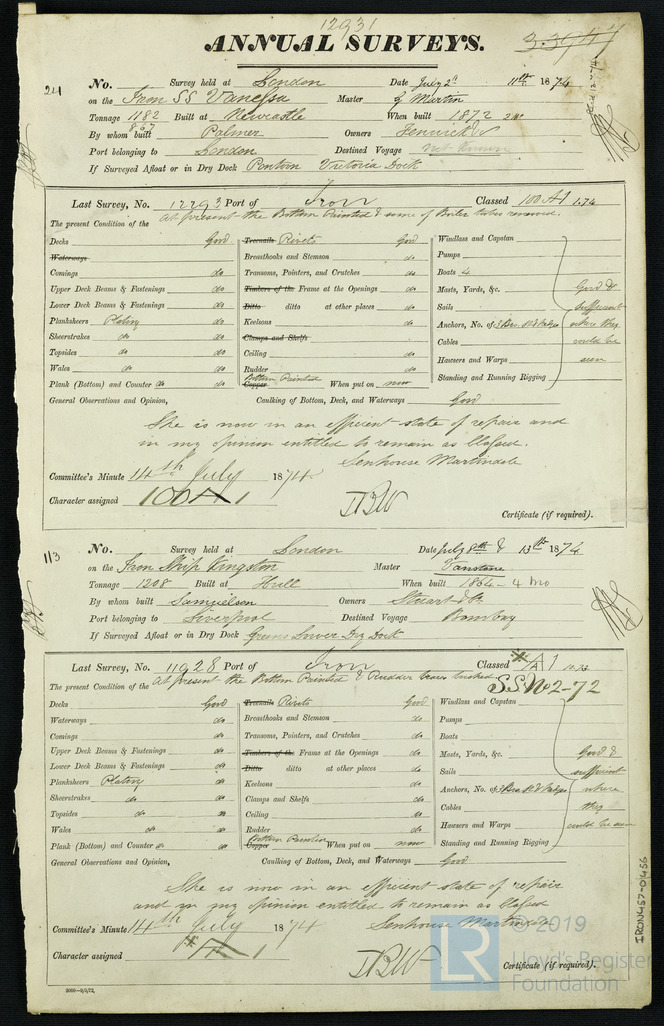 12931
ANNUAL SURVEYS.
241 No. Survey held at London Date July 2d 11th 1874
on the Iron SS Vanessa Master G Martin
Tonnage 1182 Built at Newcastle When built 1872
867
By whom built Palmer Owners Fenwick
Port belonging to London Destined Voyage not known
If Surveyed Afloat or in Dry Dock Pontoon Victoria Dock
Last Survey, No. 12293 Port of Iron Classed 100 A1 1.74
The present Condition of the At present the Bottom Painted & some of Boiler tubes renewed.
Decks Good Treenails Rivets Good Windlass and Capstan
Waterways Breasthooks and Stemson do Pumps
Comings do Transoms, Pointers, and Crutches do Boats 4
Upper Deck Beams & Fastenings do Timbers of the Frame at the Openings do Masts, Yards, &c. Good &
Lower Deck Beams & Fastenings do Ditto ditto at other places do Sails sufficient
Planksheers Plating do Keelsons do Anchors, No. of 3 where they
Sheerstrakes do do Clamps and Shelfs Cables could be
Topsides do do Ceiling do Hawsers and Warps seen
Wales do do Rudder do Standing and Running Rigging
Plank (Bottom) and Counter do do Bottom Painted Copper When put on now
General Observations and Opinion, Caulking of Bottom, Deck, and Waterways Good
She is now in an efficient state of repair and
in my opinion entitled to remain as Classed.
Senhouse Martindale
Committee's Minute 14th July 1874
Character assigned 100 A 1
Certificate (if required).
113 No. Survey held at London Date July 8th & 13th 1874
on the Iron Ship Kingston Master Vanstone
Tonnage 1208 Built at Hull When built 1864 - 4 mo
By whom built Samuelson Owners Stuart & Co
Port belonging to Liverpool Destined Voyage Bombay
If Surveyed Afloat or in Dry Dock Greens Lower Dry Dock
Last Survey, No. 11928 Port of Iron Classed A 1
SS No 2-72
The present Condition of the At present the Bottom Painted & Rudder
Decks Good Treenails Rivets Good Windlass and Capstan
Waterways do Breasthooks and Stemson do Pumps
Comings do Transoms, Pointers, and Crutches do Boats
Upper Deck Beams & Fastenings do Timbers of the Frame at the Openings do Masts, Yards, &c. Good &
Lower Deck Beams & Fastenings do Ditto ditto at other places do Sails sufficient
Planksheers Plating do Keelsons do Anchors, No. of 3 where
Sheerstrakes do do Clamps and Shelfs do Cables they
Topsides do do Ceiling do Hawsers and Warps could be seen
Wales do do Rudder do Standing and Running Rigging
Plank (Bottom) and Counter do do Bottom Painted Copper When put on now
General Observations and Opinion, Caulking of Bottom, Deck, and Waterways Good
She is now in an efficient state of repair
and in my opinion entitled to remain as Classed
Senhouse Martindale
Committee's Minute 14th July 1874
Character assigned A 1
Certificate (if required).
IRON457-0456
LR © 2019
Lloyd's Register
Foundation